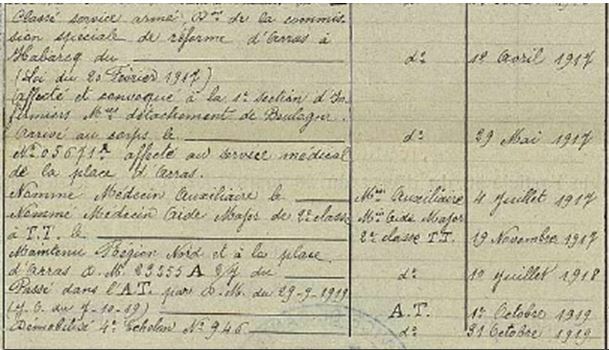 Classé service armé Don de la commis-
sion spéciale de réforme d'Arras à
Habarcq du d° 19 Avril 1917
(Loi du 20 Février 1917)
Affecté et convoqué à la 1e section d'In-
firmiers Mres détachement de Boulogne.
Arrivé au corps le d° 29 Mai 1917
N° 05671 affecté au service médical
de la place d'Arras.
Nommé Médecin Auxiliaire le Min Auxiliaire 4 Juillet 1917
Nommé Médecin Aide Major de 2e classe Min Aide Major
à T.T. le 2e classe T.T. 19 Novembre 1917
Maintenu Région Nord et à la place
d'Arras D.M. 23255 A 2/7 du d° 10 Juillet 1918
Passé dans l'A.T. par D.M. du 29-9-1919
(J.O. du 7-10-19) A.T. 1er Octobre 1919
Démobilisé 4e Echelon N° 946 d° 31 Octobre 1919